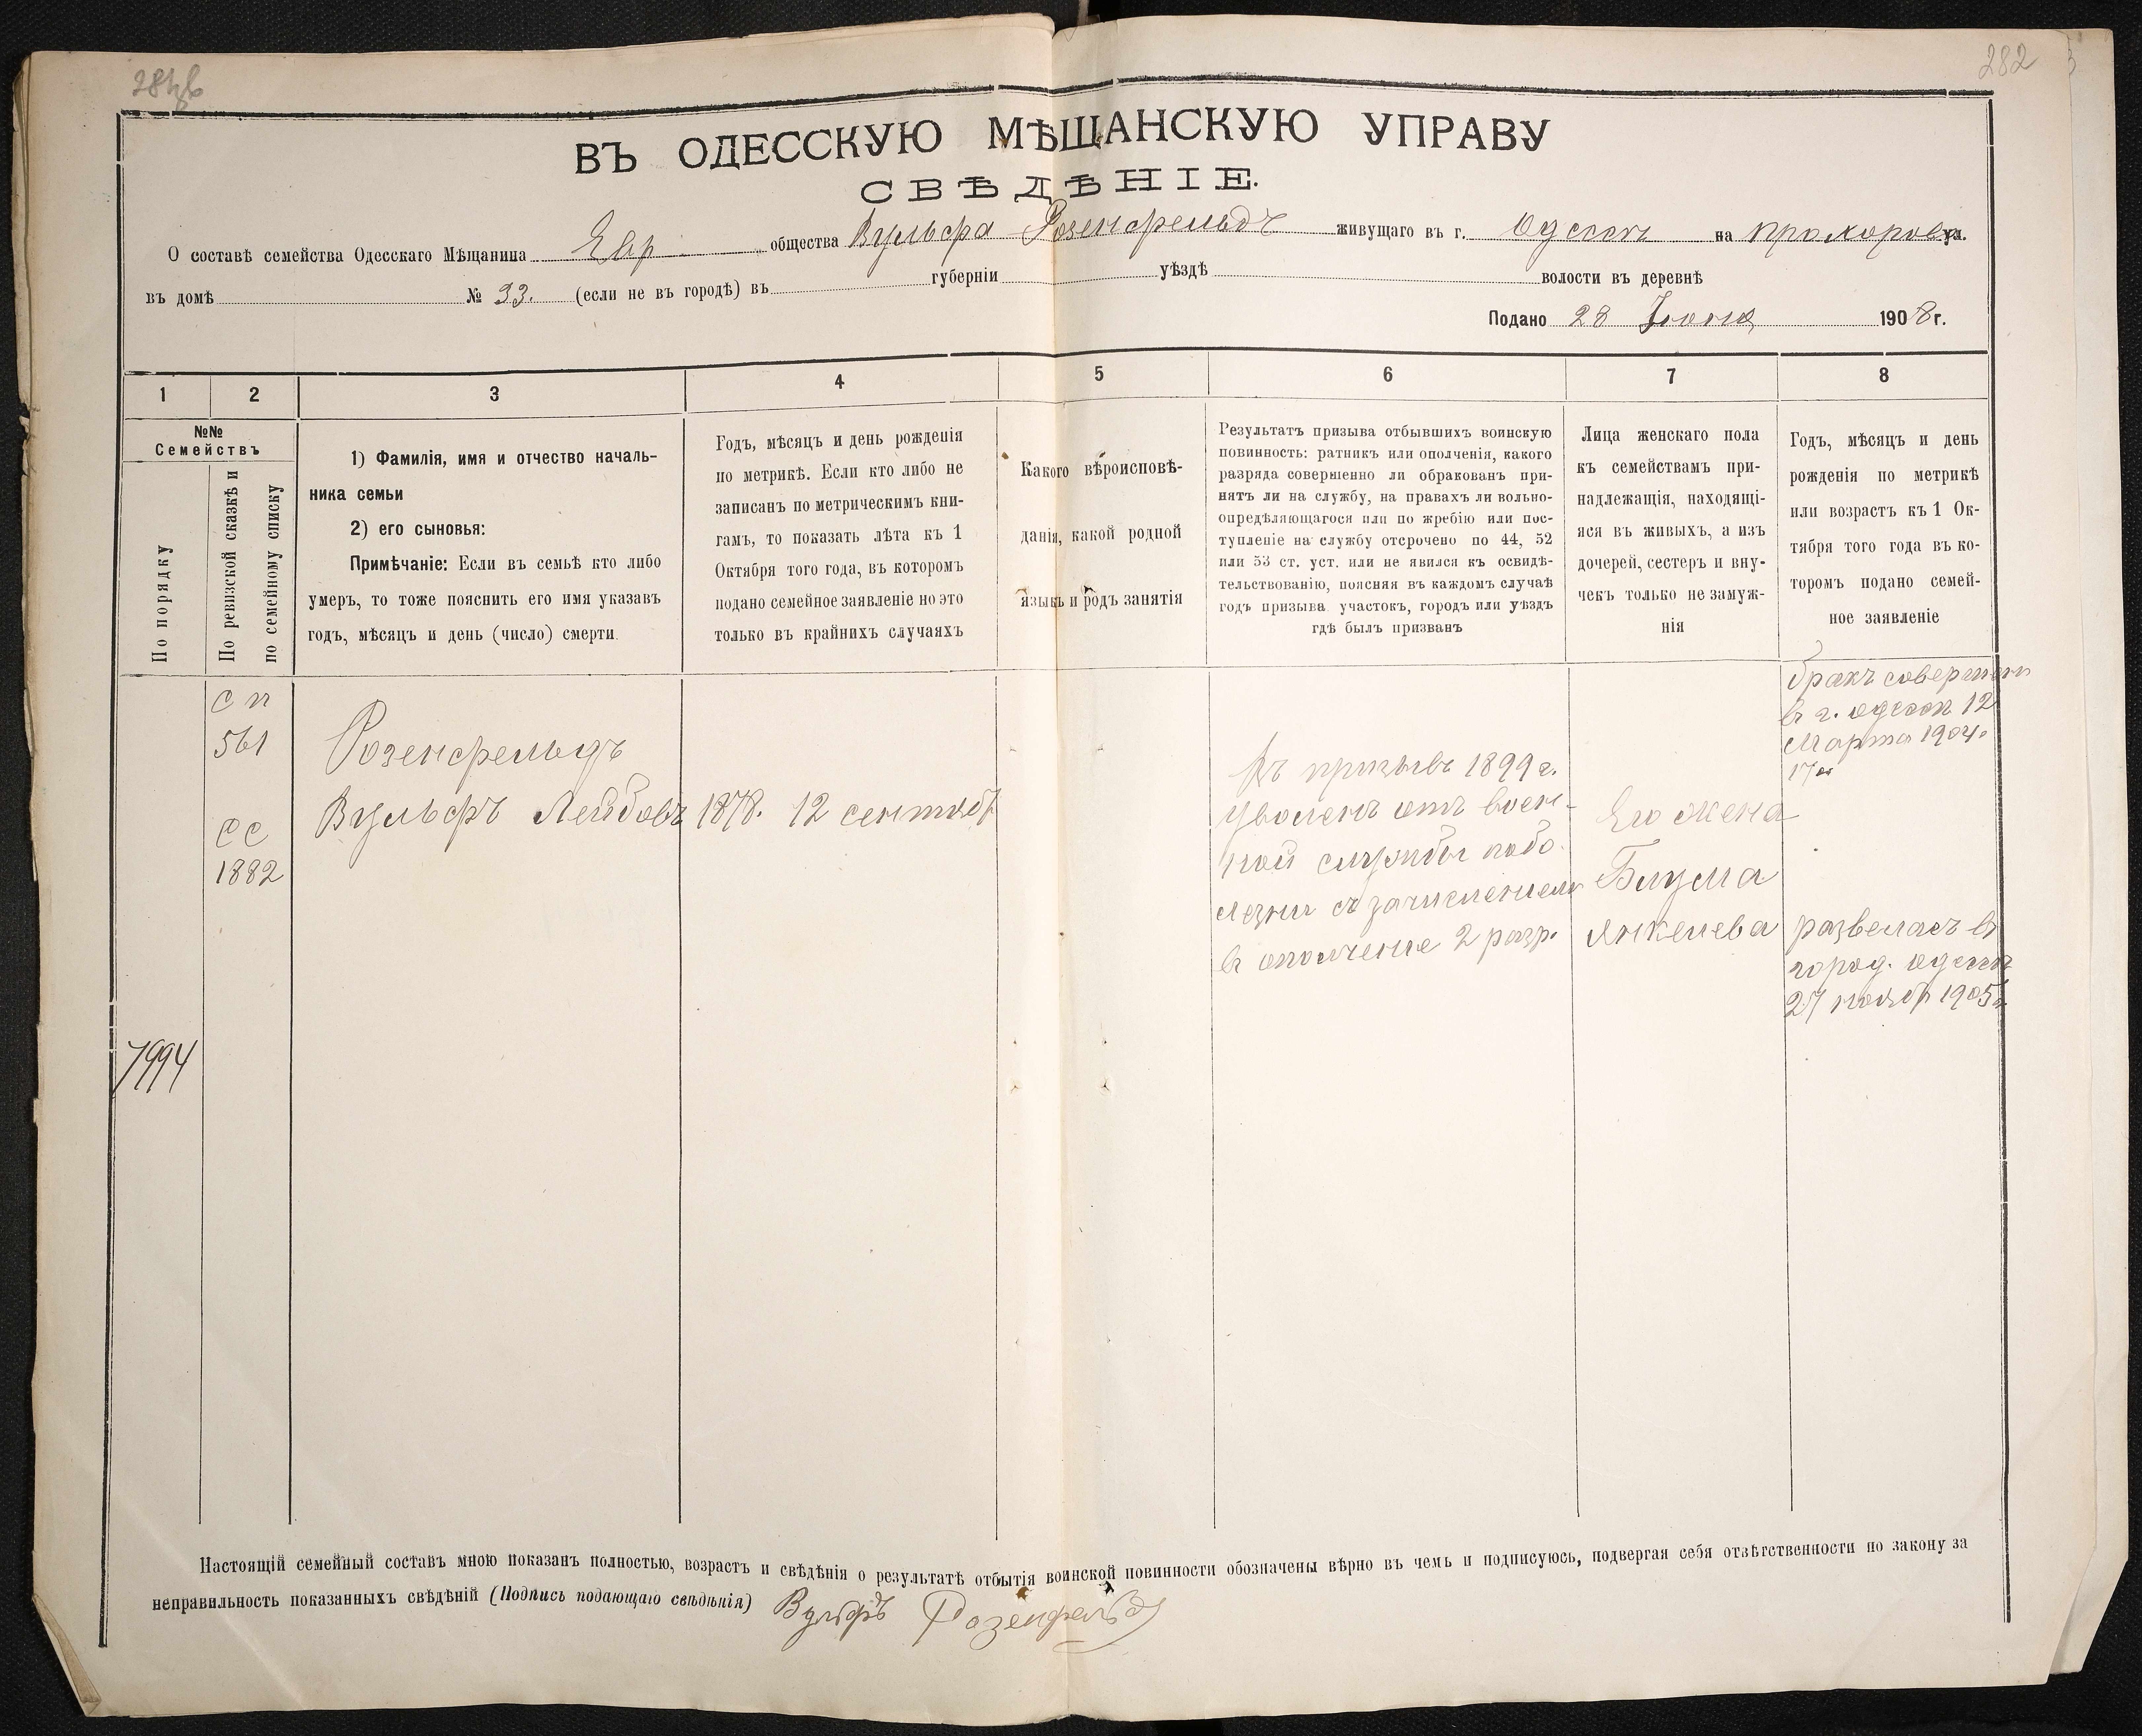 282
ВЪ ОДЕССКУЮ МѢЩАНСКУЮ УПРАВУ
СВѢДѢНІЕ.
О составѣ семейства Одесскаго Мѣщанина Евр общества Вульфа Розенфельдъ живущаго въ г. Одессѣ на Прохоровск ул.
въ домѣ № 33. (если не въ городѣ) въ губерніи уѣздѣ волости въ деревнѣ
Подано 28 Іюня 1908 г.
1 2 3 4 5 6 7 8
№№
Семействъ
По порядку
По ревизской сказкѣ и
по семейному списку
1) Фамилія, имя и отчество началь-
ника семьи
2) его сыновья:
Примѣчаніе: Если въ семьѣ кто либо
умеръ, то тоже пояснить его имя указавъ
годъ, мѣсяцъ и день (число) смерти.
Годъ, мѣсяцъ и день рожденія
по метрикѣ. Если кто либо не
записанъ по метрическимъ кни-
гамъ, то показать лѣта къ 1
Октября того года, въ которомъ
подано семейное заявленіе но это
только въ крайнихъ случаяхъ
Какого вѣроисповѣ-
данія, какой родной
языкъ и родъ занятія
Результатъ призыва отбывшихъ воинскую
повинность: ратникъ или ополченія, какого
разряда совершенно ли обракованъ при-
нятъ ли на службу, на правахъ ли вольно-
опредѣляющагося или по жребію или пос-
тупленіе на службу отсрочено по 44, 52
или 53 ст. уст. или не явился къ освидѣ-
тельствованію, поясняя въ каждомъ случаѣ
годъ призыва участокъ, городъ или уѣздъ
гдѣ былъ призванъ
Лица женскаго пола
къ семействамъ при-
надлежащія, находящі-
яся въ живыхъ, а изъ
дочерей, сестеръ и вну-
чекъ только не замуж-
нія
Годъ, мѣсяцъ и день
рожденія по метрикѣ
или возрастъ къ 1 Ок-
тября того года въ ко-
торомъ подано семей-
ное заявленіе
с п
561
сс
1882
7994
Розенфельдъ
Вульфъ Лейбовъ
1878. 12 сентябр
Въ призывъ 1899 г.
уволенъ отъ воен-
ной службы по бо
лезни съ зачисленіемъ
въ ополченіе 2 разр.
Его жена
Блума
Янкелева
бракъ совершенъ
въ г. Одессѣ 12
Марта 1904
развелась въ
город. Одессѣ
27 ноябр 1905 г
Настоящій семейный составъ мною показанъ полностью, возрастъ и свѣдѣнія о результатѣ отбытія воинской повинности обозначены вѣрно въ чемъ и подписуюсь, подвергая себя отвѣтственности по закону за
неправильность показанныхъ свѣдѣній (Подпись подающаго свѣдѣнія) Вульфъ Розенфельд